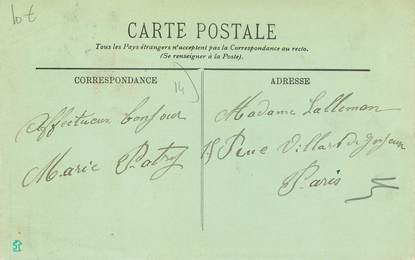 lot
CARTE POSTALE
Tous les Pays étrangers n'acceptent pas la Correspondance au recto.
(Se renseigner à la Poste).
CORRESPONDANCE
14
ADRESSE
Affectueux bonjour
Marie
Madame Lalleman
15 Rue Villard de
Paris